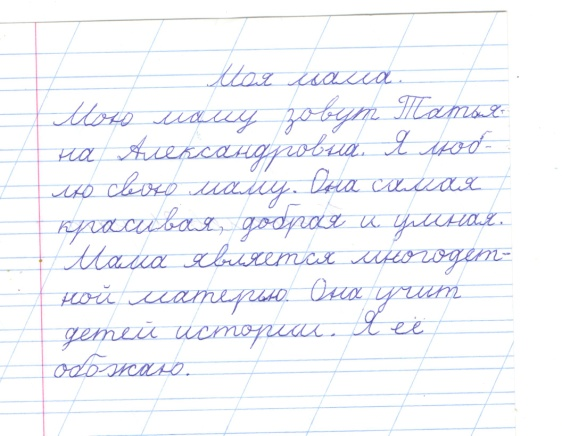 Моя мама.
Мою маму зовут Татья-
на Александровна. Я люб-
лю свою маму. Она самая
красивая, добрая и умная.
Мама является многодет-
ной матерью. Она учит
детей истории. Я её
обожаю.